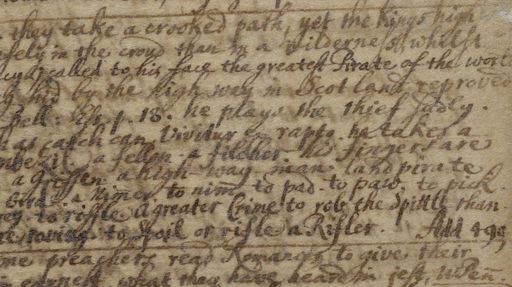 they take a crooked path, yet the Kings high
in the croud than in a wilderness, whilst
called to his face the greatest Pirate of the world
hid by the high way in Scotland, reproved
Spott. Eb. p. 18. he plays the thief sadly.
catch can. Vivitur ex rapto. he takes a
a fellon. a filcher. his fingers are
a griffen. a high-way man. land pirate
a Nimer. to nim. to pad. to paw. to pick.
to rifle a greater Crime to rob the Spittle than
roving to spoil or rifle a Rifler. Add 499
preachers read Romances to give their
earnest what they have heard in jest. W. Pen.